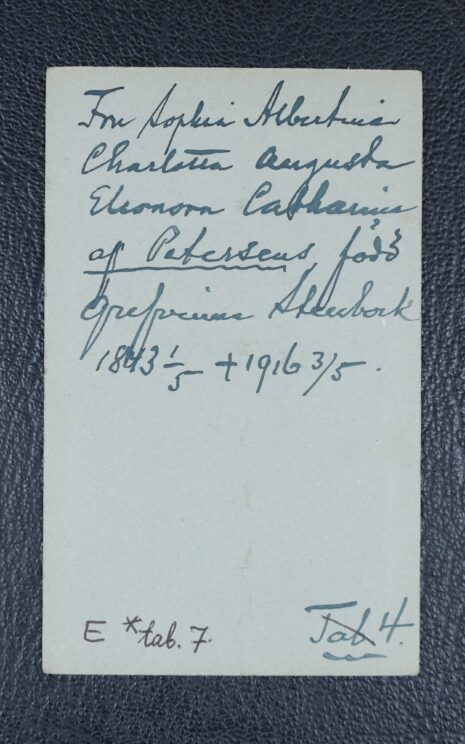 Fru Sophia Albertina
Charlotta Augusta
Eleonora Catharina
af Petersens, född
Grefvinna Stenbock
1843 1/5 + 1916 3/5.
E *tab. 7.
Tab 4.